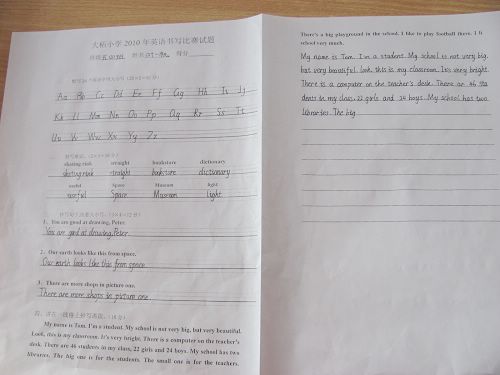 大桥小学 2010 年英语书写比赛试题
Aa Bb Cc Dd Ee Ff Gg Hh Ii Jj
Kk Ll Mm Nn Oo Pp Qq Rr Ss Tt
Uu Vv Ww Xx Yy Zz
skating rink straight bookstore dictionary
skating rink straight bookstore dictionary
useful Space Museum light
useful Space Museum light
1、You are good at drawing, Peter.
You are good at drawing, Peter.
2、Our earth looks like this from space.
Our earth looks like this from space.
3、There are more shops in picture one.
There are more shops in picture one.
My name is Tom. I'm a student. My school is not very big, but very beautiful.
Look, this is my classroom. It's very bright. There is a computer on the teacher's
desk. There are 46 students in my class, 22 girls and 24 boys. My school has two
libraries. The big one is for the students. The small one is for the teachers.
There's a big playground in the school. I like to play football there. I
school very much.
My name is Tom. I'm a student. My school is not very big,
but very beautiful. Look, this is my classroom. It's very bright.
There is a computer on the teacher's desk. There are 46 stu
dents in my class, 22 girls and 24 boys. My school has two
libraries. The big